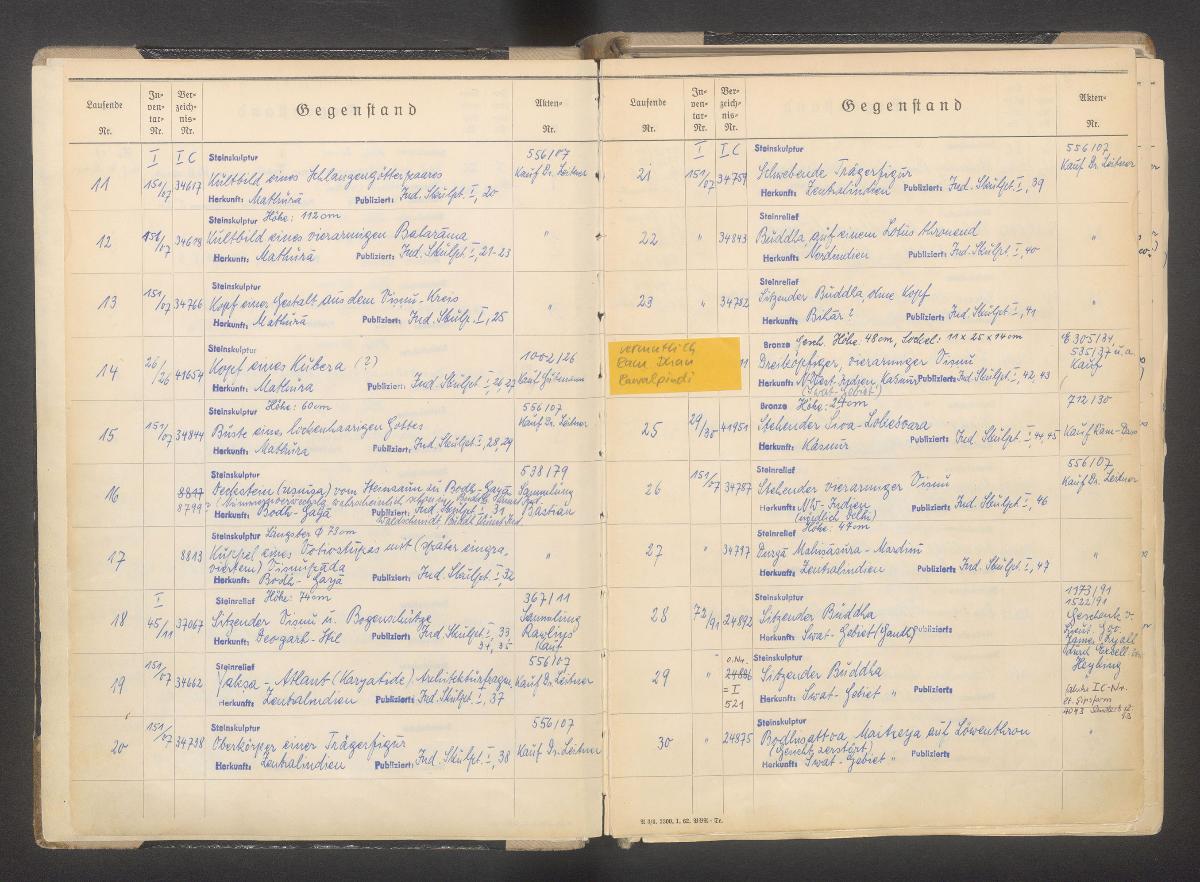 Laufende Nr.
In-ven-tar-Nr.
Ver-zeich-nis-Nr.
Gegenstand
Akten-Nr.
I I C Steinskulptur 556/07
11 151/07 34617 Kultbild eines Schlangengötterpaares Kauf Dr. Leitner
Herkunft: Mathurā Publiziert: Ind. Skulpt. I, 20
Steinskulptur Höhe: 112 cm
12 151/07 34618 Kultbild eines vierarmigen Balarāma "
Herkunft: Mathurā Publiziert: Ind. Skulpt. I, 21-23
Steinskulptur
13 151/07 34766 Kopf einer Gestalt aus dem Visnu-Kreis "
Herkunft: Mathurā Publiziert: Ind. Skulp. I, 25
Steinskulptur 1002/26
14 26/26 41654 Kopf eines Kubera (?) Kauf Gutmann
Herkunft: Mathura Publiziert: Ind. Skulpt. I, 26, 27
Steinskulptur Höhe: 60cm 556/07
15 151/07 34844 Büste eines lockenhaarigen Gottes Kauf Dr. Leitner
Herkunft: Mathurā Publiziert: Ind. Skulpt. I, 28, 29
Steinskulptur 538/79
16 8817 Deckstein (usnisa) vom Steinzaun zu Bodh-Gayā Sammlung
8799?
Herkunft: Bodh-Gayā Publiziert: Ind. Skulpt. I, 31 Bastian
Steinskulptur Längster Φ 73cm
17 8813 Kuppel eines Votivstupas mit (später eingra- "
viertem) Visnupāda
Herkunft: Bodh-Gayā Publiziert: Ind. Skulpt. I, 32
I Steinrelief Höhe: 74cm 367/11
18 45/11 37067 Sitzender Visnu u. Bogenschütze Sammlung
Herkunft: Deogarh-Stil Publiziert: Ind. Skulpt. I, 33, 34, 35 Rawlins Kauf
Steinrelief 556/07
19 151/07 34662 Yaksa-Atlant (Karyatide) Architekturfragm. Kauf Dr. Leitner
Herkunft: Zentralindien Publiziert: Ind. Skulpt. I, 37
Steinskulptur 556/07
20 151/07 34738 Oberkörper einer Trägerfigur Kauf Dr. Leitner
Herkunft: Zentralindien Publiziert: Ind. Skulpt. I, 38
Laufende Nr.
In-ven-tar-Nr.
Ver-zeich-nis-Nr.
Gegenstand
Akten-Nr.
I I C Steinskulptur 556/07
21 151/07 34759 Schwebende Trägerfigur Kauf Dr. Leitner
Herkunft: Zentralindien Publiziert: Ind. Skulpt. I, 39
Steinrelief
22 " 34843 Buddha, auf einem Lotus thronend "
Herkunft: Nordindien Publiziert: Ind. Skulpt. I, 40
Steinrelief
23 " 34782 Sitzender Buddha, ohne Kopf "
Herkunft: Bihār? Publiziert: Ind. Skulpt. I, 41
vermutlich
Ram Dhan
Rawalpindi
Bronze Gesch. Höhe: 48cm, Sockel: 11 x 25 x 14cm E 305/34,
535/37 u.a.
Dreiköpfiger, vierarmiger Visnu Kauf
Herkunft: N.West-Indien, Kasmir Publiziert: Ind. Skulpt. I, 42, 43
(Swat-Gebiet)
Bronze Höhe: 27cm 712/30
25 29/30 41951 Stehender Siva-Lokesvara Kauf Ram-Dass
Herkunft: Kasmir Publiziert: Ind. Skulpt. I, 44, 45
Steinrelief 556/07
26 151/07 34787 Stehender vierarmiger Visnu Kauf Dr. Leitner
Herkunft: NW-Indien Publiziert: Ind. Skulpt. I, 46
(nördlich Delhi)
Steinrelief Höhe: 47cm
27 " 34797 Durgā Mahisāsura-Mardinī "
Herkunft: Zentralindien Publiziert: Ind. Skulpt. I, 47
Steinskulptur 1373/91
1522/91
28 72/91 24892 Sitzender Buddha Geschenk v.
Herkunft: Swat-Gebiet (Gandh.) Publiziert: James Lyall
Steinskulptur
29 " 24886 Sitzender Buddha Heyting
= I 521 Herkunft: Swat-Gebiet " Publiziert
falsche I C-Nr.
Steinskulptur
30 " 24875 Bodhisattva Maitreya auf Löwenthron "
(Gesicht zerstört) Publiziert
Herkunft: Swat-Gebiet "